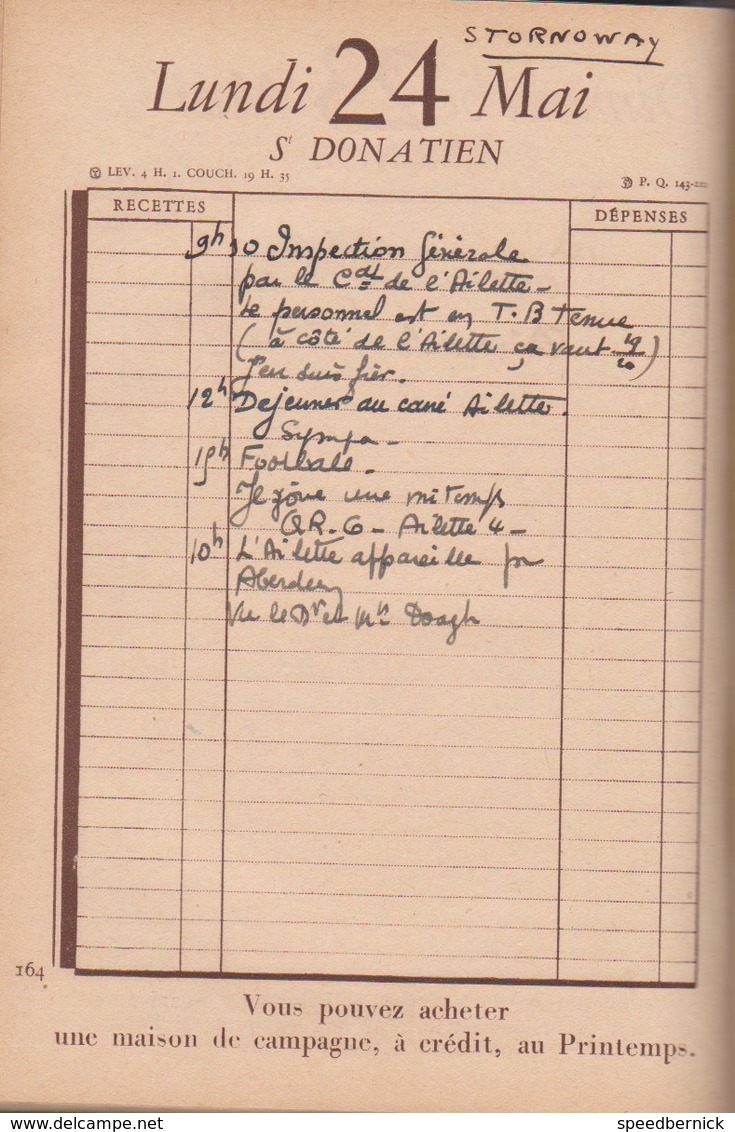 STORNOWAY
Lundi 24 Mai
St DONATIEN
LEV. 4 H. 1. COUCH. 19 H. 35
P. Q. 143-222
RECETTES
DÉPENSES
9h30 Inspection Générale
par le Cdt de l'Ailette -
Le personnel est en T.B tenue
(à côté de l'Ailette ça vaut 19/20)
J'en suis fier.
12h Dejeuner au carré Ailette.
Sympa -
15h Football.
Je joue une mi temps
QR. 6 - Ailette 4 -
L'Ailette appareille pr
Aberdeen
Vu le Dr et Mrs
164
Vous pouvez acheter
une maison de campagne, à crédit, au Printemps.
speedbernick